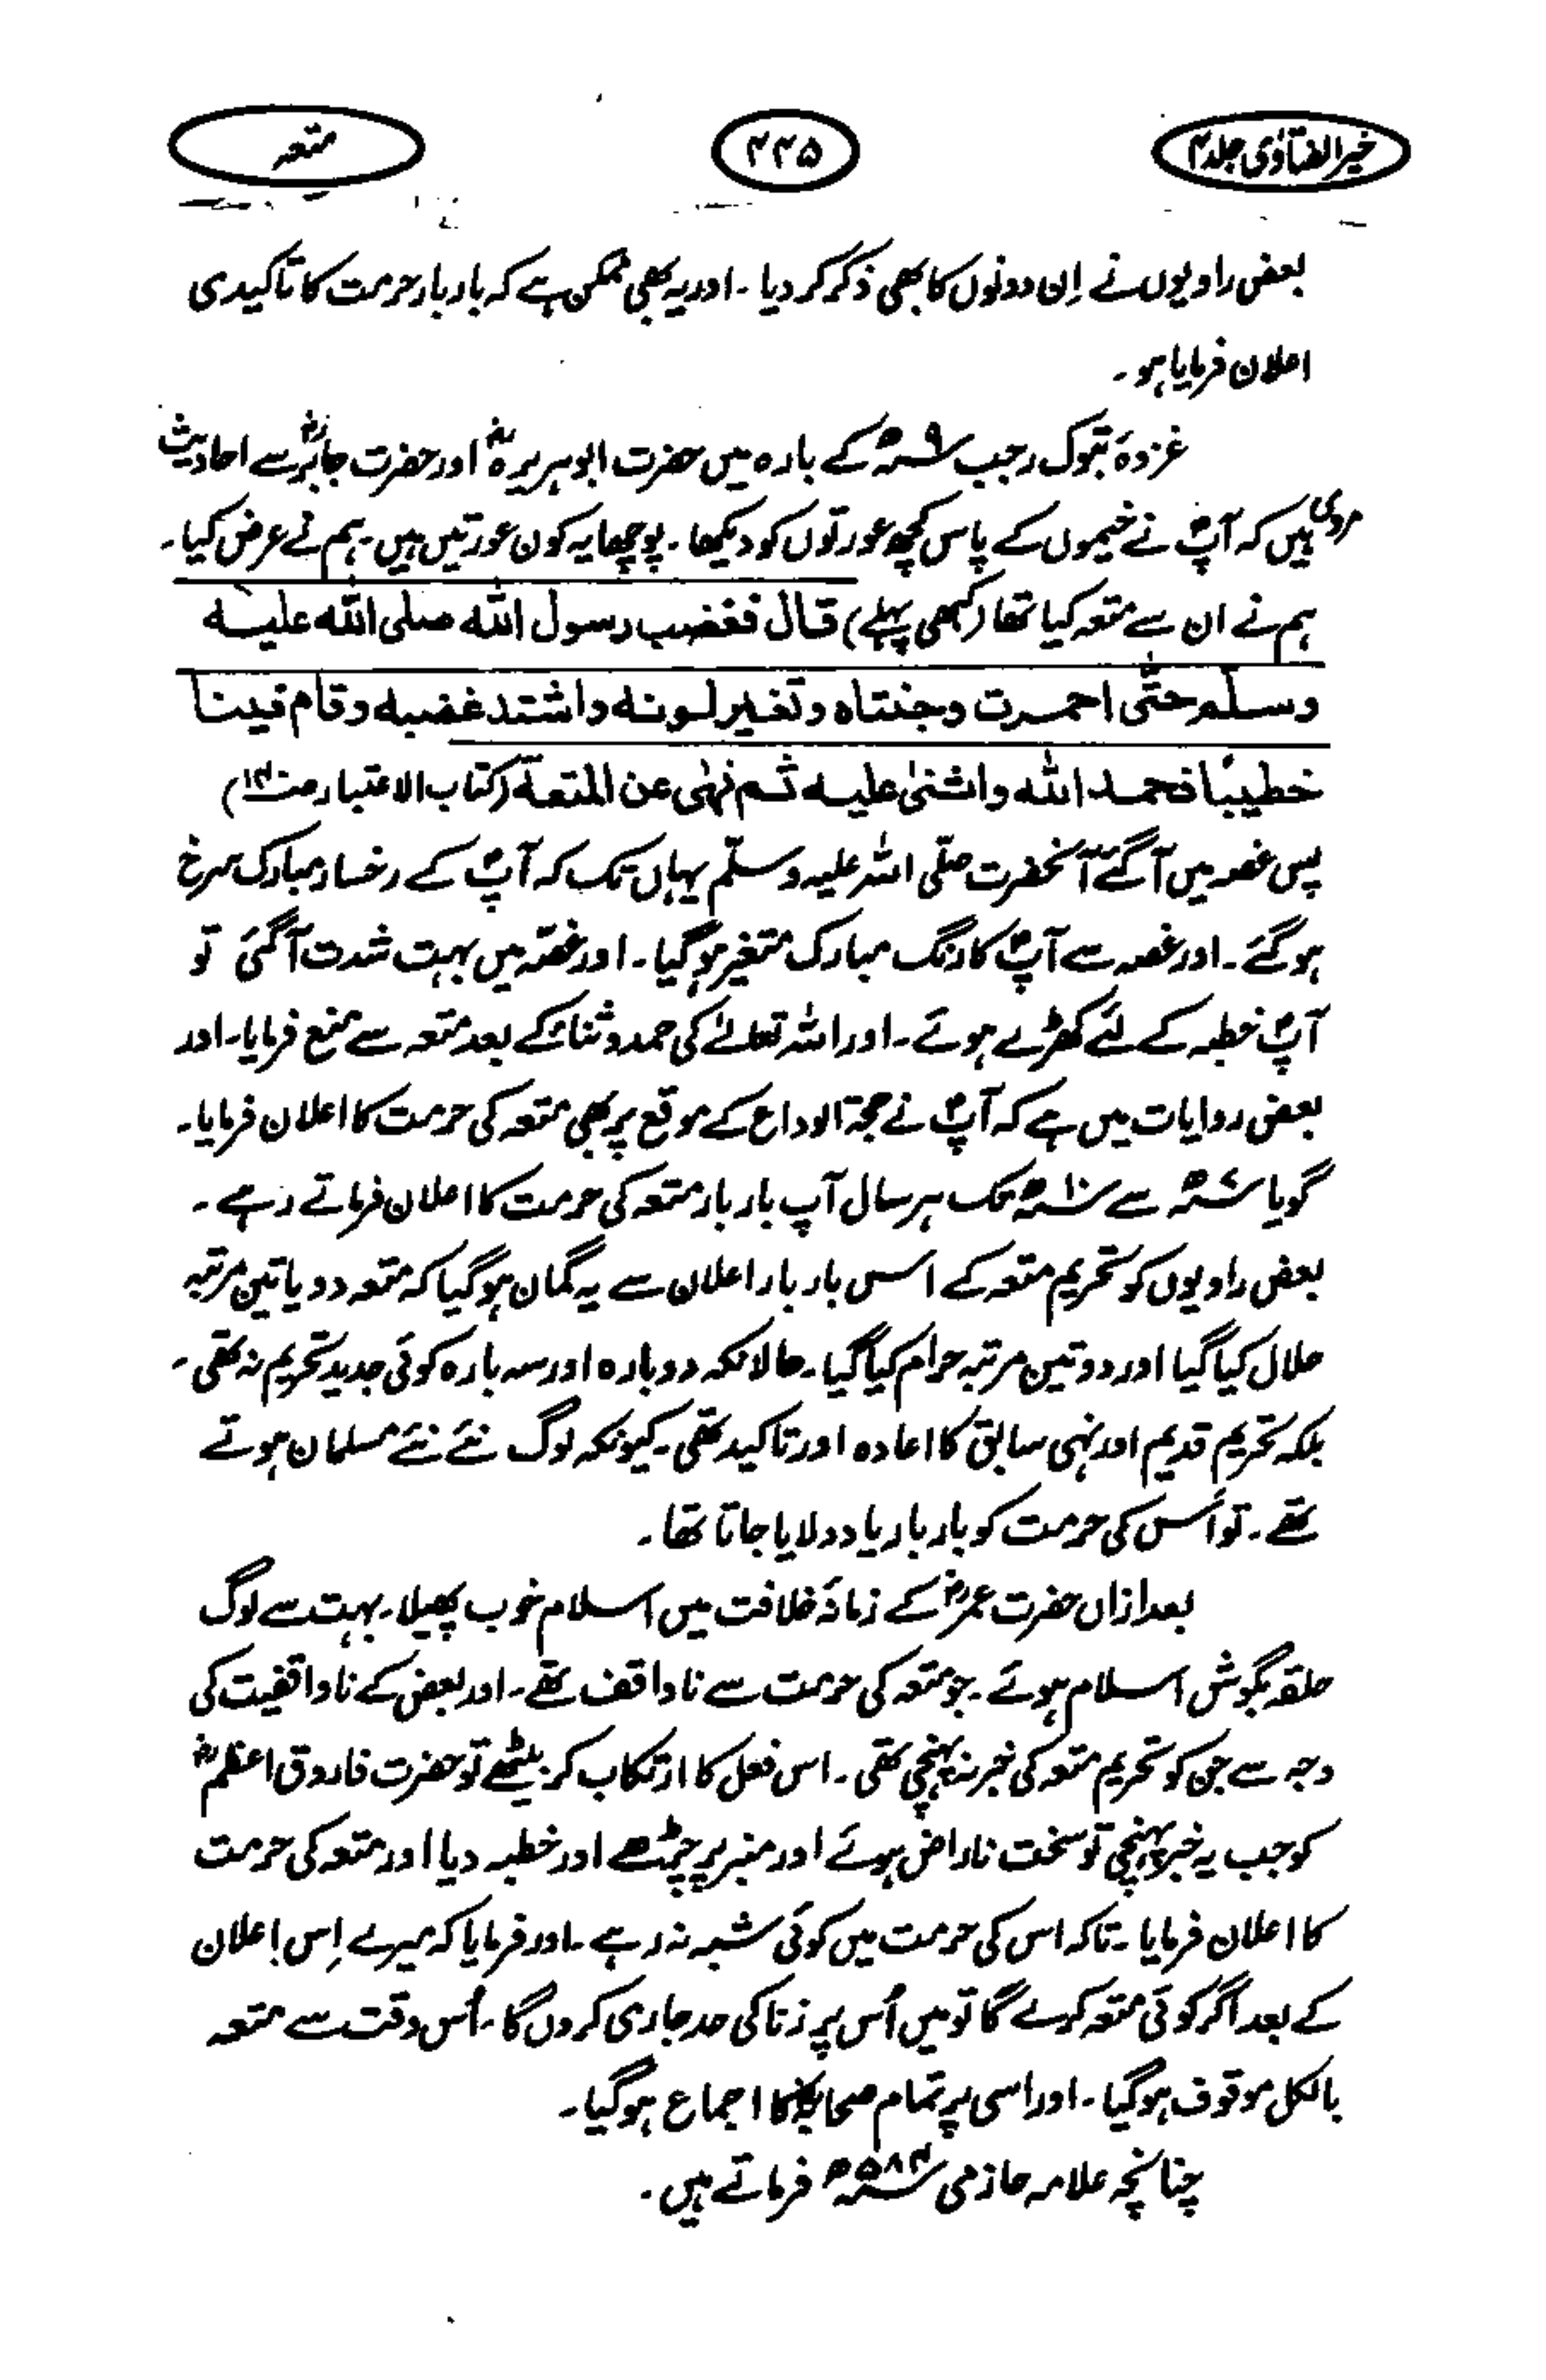 خیر الفتاوٰی جلد ۴
۴۴۵
متعہ
بعض راویوں نے اِن دونوں کا بھی ذکر کر دیا ۔ اور یہ بھی ممکن ہے کہ بار بار حرمت کا تاکیدی
اعلان فرمایا ہو ۔
غزوۂ تبوک رجب ۹ھ کے بارہ میں حضرت ابو ہریرہؓ اور حضرت جابرؓ سے احادیث
مروی ہیں کہ آپؐ نے خیموں کے پاس کچھ عورتوں کو دیکھا ۔ پوچھا یہ کون عورتیں ہیں ۔ ہم نے عرض کیا ۔
ہم نے ان سے متعہ کیا تھا (کبھی پہلے) قال فغضب رسول اللّٰہ صلی اللّٰہ علیہ
وسلّم حتّٰی احمرت وجنتاہ وتغیر لونہ واشتد غضبہ وقام فینا
خطیبًا فحمد اللّٰہ واثنیٰ علیہ ثم نہٰی عن المتعۃ (کتاب الاعتبار)
پس غصہ میں آگئے آنحضرت صلّی اللہ علیہ وسلّم یہاں تک کہ آپؐ کے رخسار مبارک سرخ
ہو گئے ۔ اور غصہ سے آپؐ کا رنگ مبارک متغیر ہو گیا ۔ اور غصّہ میں بہت شدت آگئی تو
آپؐ خطبہ کے لئے کھڑے ہوئے ۔ اور اللہ تعالےٰ کی حمد و ثناء کے بعد متعہ سے منع فرمایا ۔ اور
بعض روایات میں ہے کہ آپؐ نے حجۃ الوداع کے موقع پر بھی متعہ کی حرمت کا اعلان فرمایا ۔
گویا ۷ھ سے ۱۰ھ تک ہر سال آپ بار بار متعہ کی حرمت کا اعلان فرماتے رہے ۔
بعض راویوں کو تحریم متعہ کے اس بار بار اعلان سے یہ گمان ہو گیا کہ متعہ دو یا تین مرتبہ
حلال کیا گیا اور دو تین مرتبہ حرام کیا گیا ۔ حالانکہ دوبارہ اور سہ بارہ کوئی جدید تحریم نہ تھی ۔
بلکہ تحریم قدیم اور نہی سابق کا اعادہ اور تاکید تھی ۔ کیونکہ لوگ نئے نئے مسلمان ہوتے
تھے ۔ تو اُس کی حرمت کو بار بار یاد دلایا جاتا تھا ۔
بعد ازاں حضرت عمرؓ کے زمانۂ خلافت میں اسلام خوب پھیلا ۔ بہت سے لوگ
حلقہ بگوش اسلام ہوئے ۔ جو متعہ کی حرمت سے ناواقف تھے ۔ اور بعض کے ناواقفیت کی
وجہ سے جن کو تحریم متعہ کی خبر نہ پہنچی تھی ۔ اس فعل کا ارتکاب کر بیٹھے تو حضرت فاروق اعظمؓ
کو جب یہ خبر پہنچی تو سخت ناراض ہوئے اور منبر پر چڑھے اور خطبہ دیا اور متعہ کی حرمت
کا اعلان فرمایا ۔ تاکہ اس کی حرمت میں کوئی شبہ نہ رہے ۔ اور فرمایا کہ میرے اِس اعلان
کے بعد اگر کوئی متعہ کرے گا تو میں اُس پر زنا کی حد جاری کر دوں گا ۔ اُس وقت سے متعہ
بالکل موقوف ہو گیا ۔ اور اسی پر تمام صحابہؓ کا اجماع ہو گیا ۔
چنانچہ علامہ حازمی ۵۸۴ھ فرماتے ہیں ۔